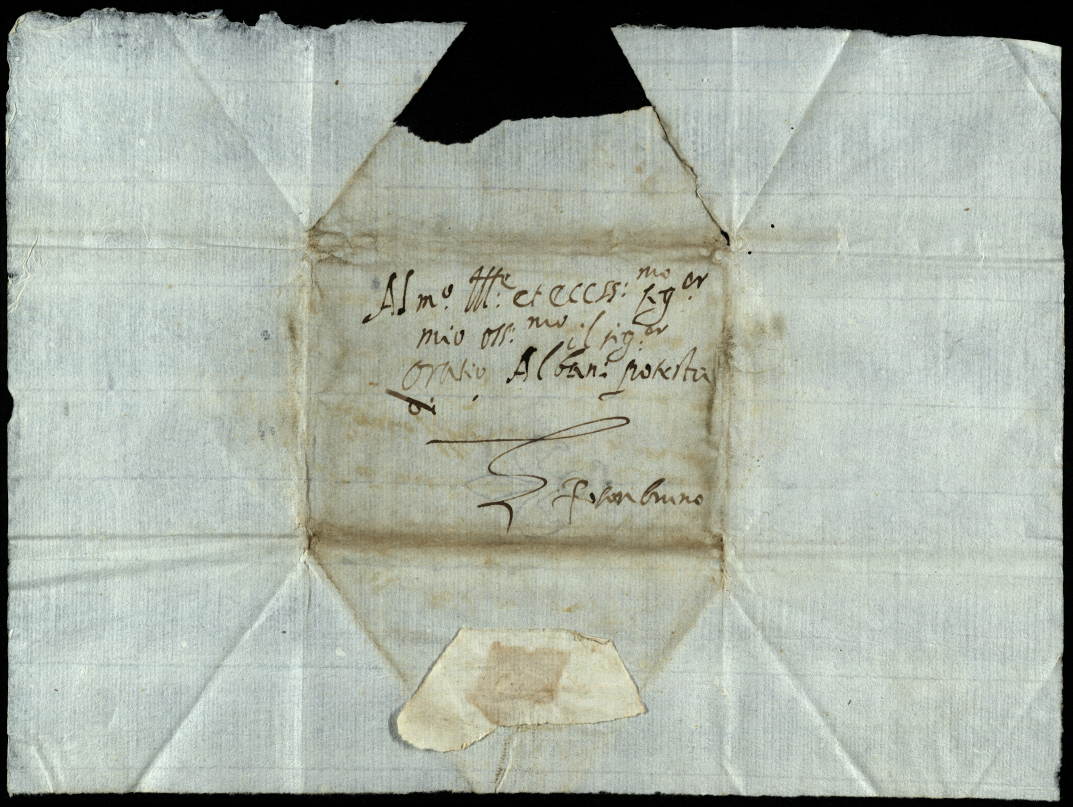 Al m.º Ill.e et eccss:mo sig.or
mio oss:mo il sig.or
Oratio Albani potesta
di
Fosonbruno